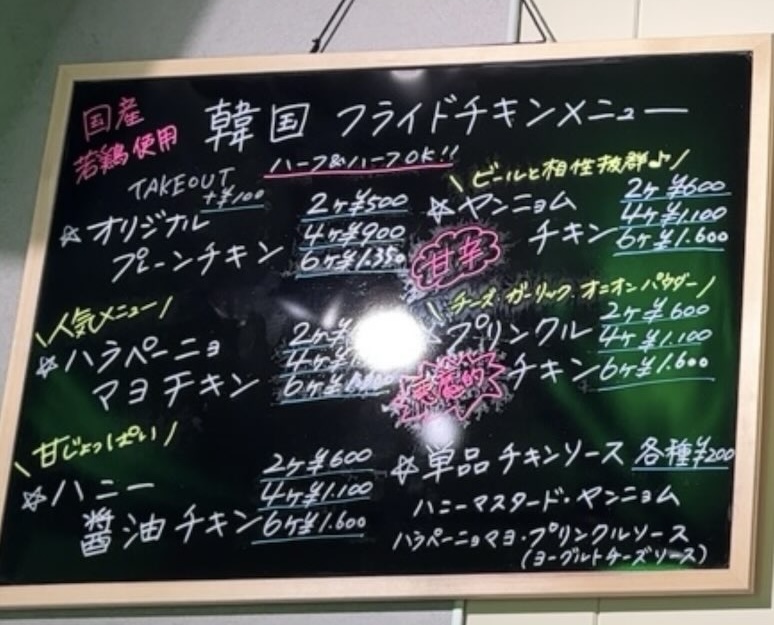 国産
若鶏使用
韓国 フライドチキンメニュー
ハーフ&ハーフOK!!
TAKEOUT
+¥100
☆オリジナル
プレーンチキン
2ケ¥500
4ケ¥900
6ケ¥1.350
\人気メニュー/
☆ハラペーニョ
マヨチキン
2ケ
4ケ
6ケ
\甘じょっぱい/
☆ハニー
醤油チキン
2ケ¥600
4ケ¥1.100
6ケ¥1.600
\ビールと相性抜群♪/
☆ヤンニョム
チキン
甘辛
2ケ¥600
4ケ¥1.100
6ケ¥1.600
\チーズ・ガーリック・オニオンパウダー/
プリンクル
チキン
2ケ¥600
4ケ¥1.100
6ケ¥1.600
☆単品チキンソース 各種¥200
ハニーマスタード・ヤンニョム
ハラペーニョマヨ・プリンクルソース
(ヨーグルトチーズソース)